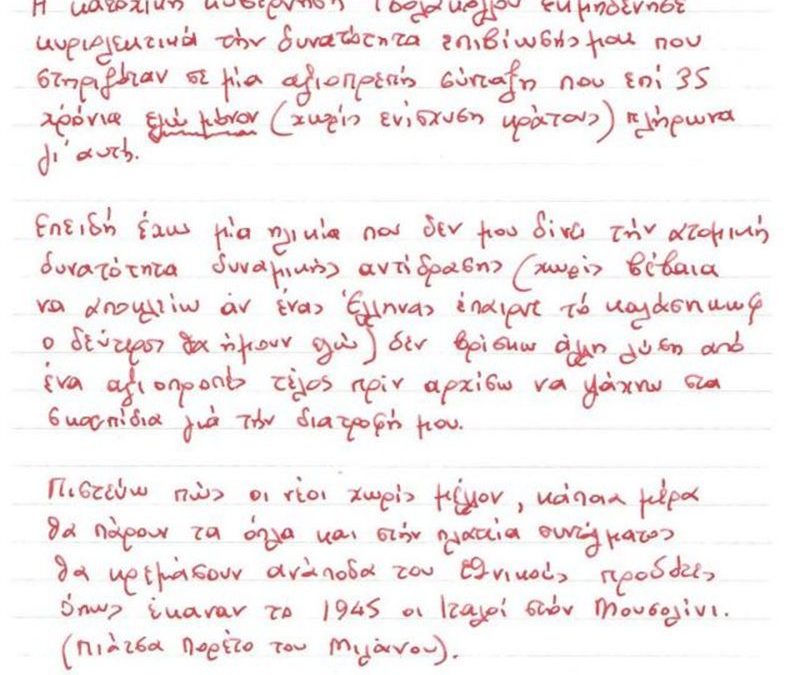 Η κατοχική κυβέρνηση Τσολάκογλου εκμηδένησε
κυριολεκτικά την δυνατότητα επιβίωσής μου που
στηριζόταν σε μία αξιοπρεπή σύνταξη που επί 35
χρόνια εγώ μόνον (χωρίς ενίσχυση κράτους) πλήρωνα
γι' αυτή.
Επειδή έχω μία ηλικία που δεν μου δίνει την ατομική
δυνατότητα δυναμικής αντίδρασης (χωρίς βέβαια
να αποκλείω άν ένας Έλληνας έπαιρνε το καλάσηκωφ
ο δεύτερος θα ήμουν εγώ) δέν βρίσκω άλλη λύση από
ένα αξιοπρεπές τέλος πρίν αρχίσω να ψάχνω στα
σκουπίδια γιά την διατροφή μου.
Πιστεύω πώς οι νέοι χωρίς μέλλον, κάποια μέρα
θα πάρουν τα όπλα και στην πλατεία συντάγματος
θα κρεμάσουν ανάποδα τους εθνικούς προδότες
όπως έκαναν το 1945 οι Ιταλοί στόν Μουσολίνι.
(Πιάτσα Πορέτο του Μιλάνου).